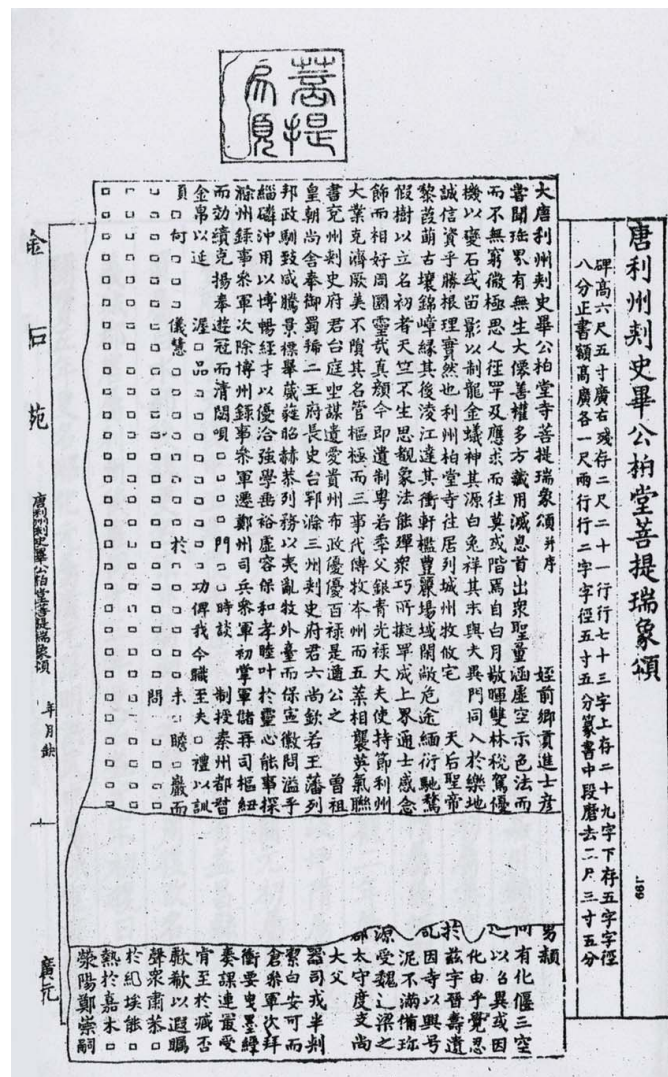 菩提
頌
唐利州刺史畢公柏堂菩提瑞象頌
碑高六尺五寸廣右殘存二尺二十一行行七十三字上存二十九字下存五字字徑
八分正書額高廣各一尺兩行行二字字徑五寸五分篆書中段磨去二尺三寸五分
199
大唐利州刺史畢公柏堂寺菩提瑞象頌并序 姪前鄉貢進士彥
嘗聞珎界有無生大儀善權多方識用滅息首出衆聖量涵虛空示色法而
而不無窮微極思人徃罕及應求而往莫或階焉自白月掞暉雙林稅駕優
機以變石或留影以制龍金蟻神其源白兔禅其末與夫異門同入於樂地
誠信資乎勝根理實然也利州柏堂寺往居列城州牧攸宅 天后聖帝
黎萌古壤錦嶂緣其後淩江達其衝軒檻豊麗場域閑敞危途緬衍馳騖
假樹以立名初者天竺不生思覩象法能殫衆巧所擬罕成上界通士感念
飾而相好周圓靈哉真顏今即遺制粵若季父銀青光祿大夫使持節利州
大業克濟厥美不隕其名管樞極而三事代傳牧本州而五葉相襲英氣聯
書兗州刺史府君台庭聖謀遺愛貴州布政優優百祿是遒公之 曾祖
皇朝尚舍奉御蜀虢二王府長史台郢滁三州刺史府君六尚欽若王藩列
邦政馴致咸騰景標畢葳蕤昭赫恭列務以夷亂牧外臺而保寔徽問溢乎
緇磷沖用以博暢經才以優洽強學垂裕虛容保和孝睦叶於靈心能事探
滁州錄事參軍次除博州錄事參軍遷鄭州司兵參軍初掌軍儲再司樞紐
而効績克揚奉遊冠而清闊唄□□□□□門□□時談 制授秦州都督
金帛以延 渥□品□□□□□□□□功俾我今職至夫□禮以訓
頁□何□□□儀慧□□□□□於□□□□□未□瞻□巖而
□□□□□□□□□□□□□□□□□問□□□□
男頴
問有化偃三空
起以名異或因
化由乎覺忍
於茲字晉壽遺
因寺以興号
泥不滿備珎
源受魏之梁之
郡太守度支尚
大父
器司戎半刺
絜白安可而
倉參軍次拜
衝要曳墨綬
奏課連最受
肯至於臧否
歔欷以遐矚
聲衆肅恭□
於紀埃能□
熱於嘉木□
滎陽鄭崇嗣
金石苑
唐利州刺史畢公柏堂菩提瑞象頌 年月缺
十
廣元